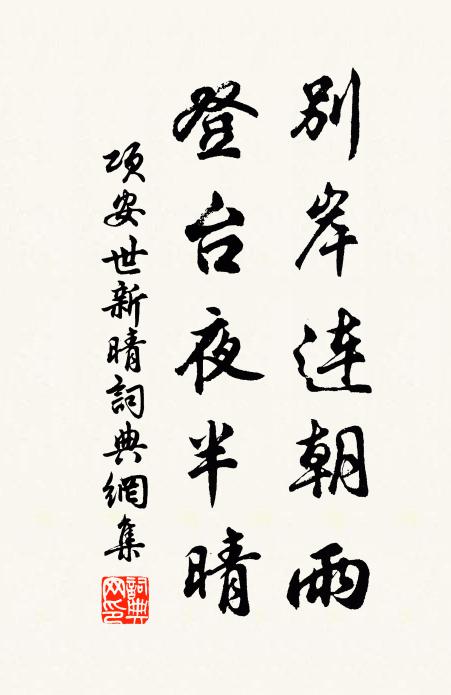 別岸连朝雨
登台夜半晴
项安世新晴詞典網集
詞典网印